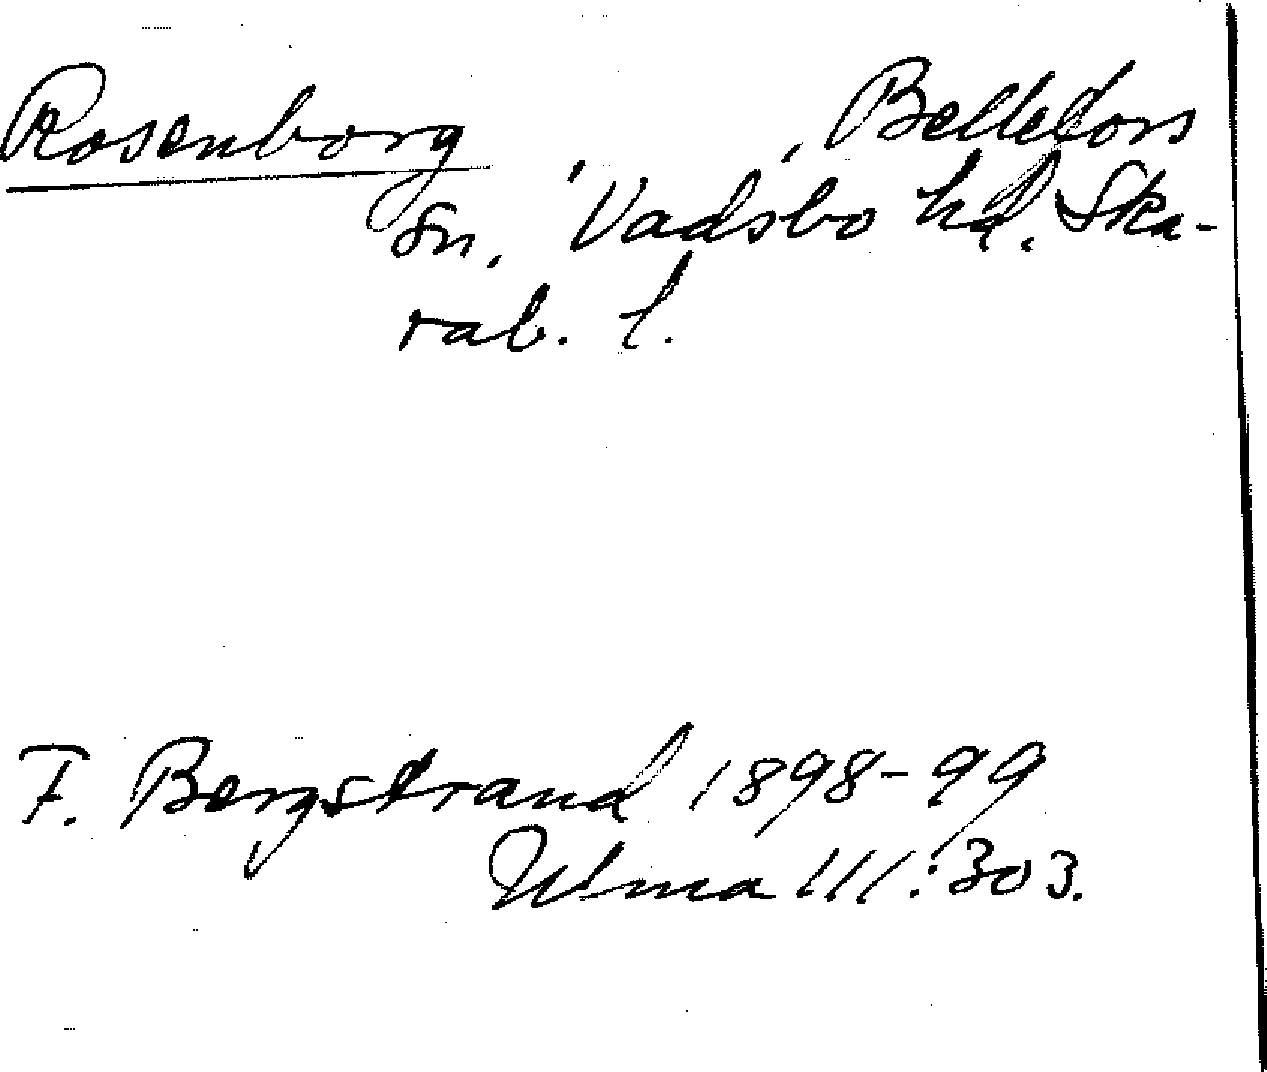 Rosenborg , , Bellefors
Sn, Vadsbo hd. Ska-
rab. l.
F. Bergstrand 1898-99
Ulma 111:303.